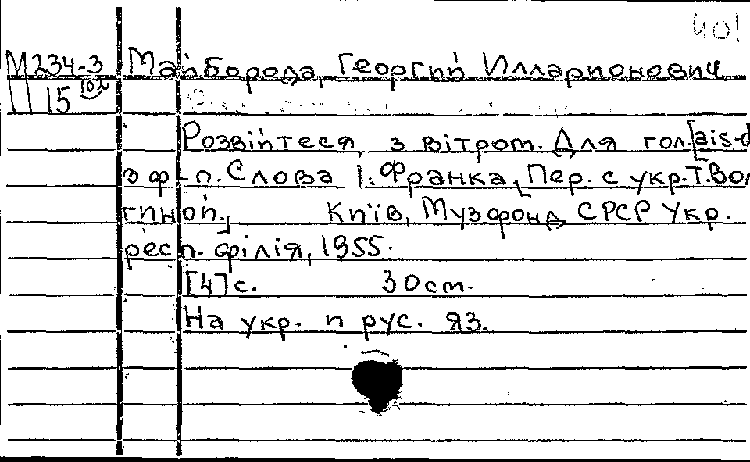 401
М234-3 Майборода, Георгий Илларионович
15
Розвійтеся з вітром. Для гол. [ais-d
з ф-п. Слова І. Франка, [Пер. с укр. Т. Вол
гиной.] Київ, Музфонд СРСР Укр.
респ. філія, 1955.
[4] с. 30 см.
На укр. и рус. яз.